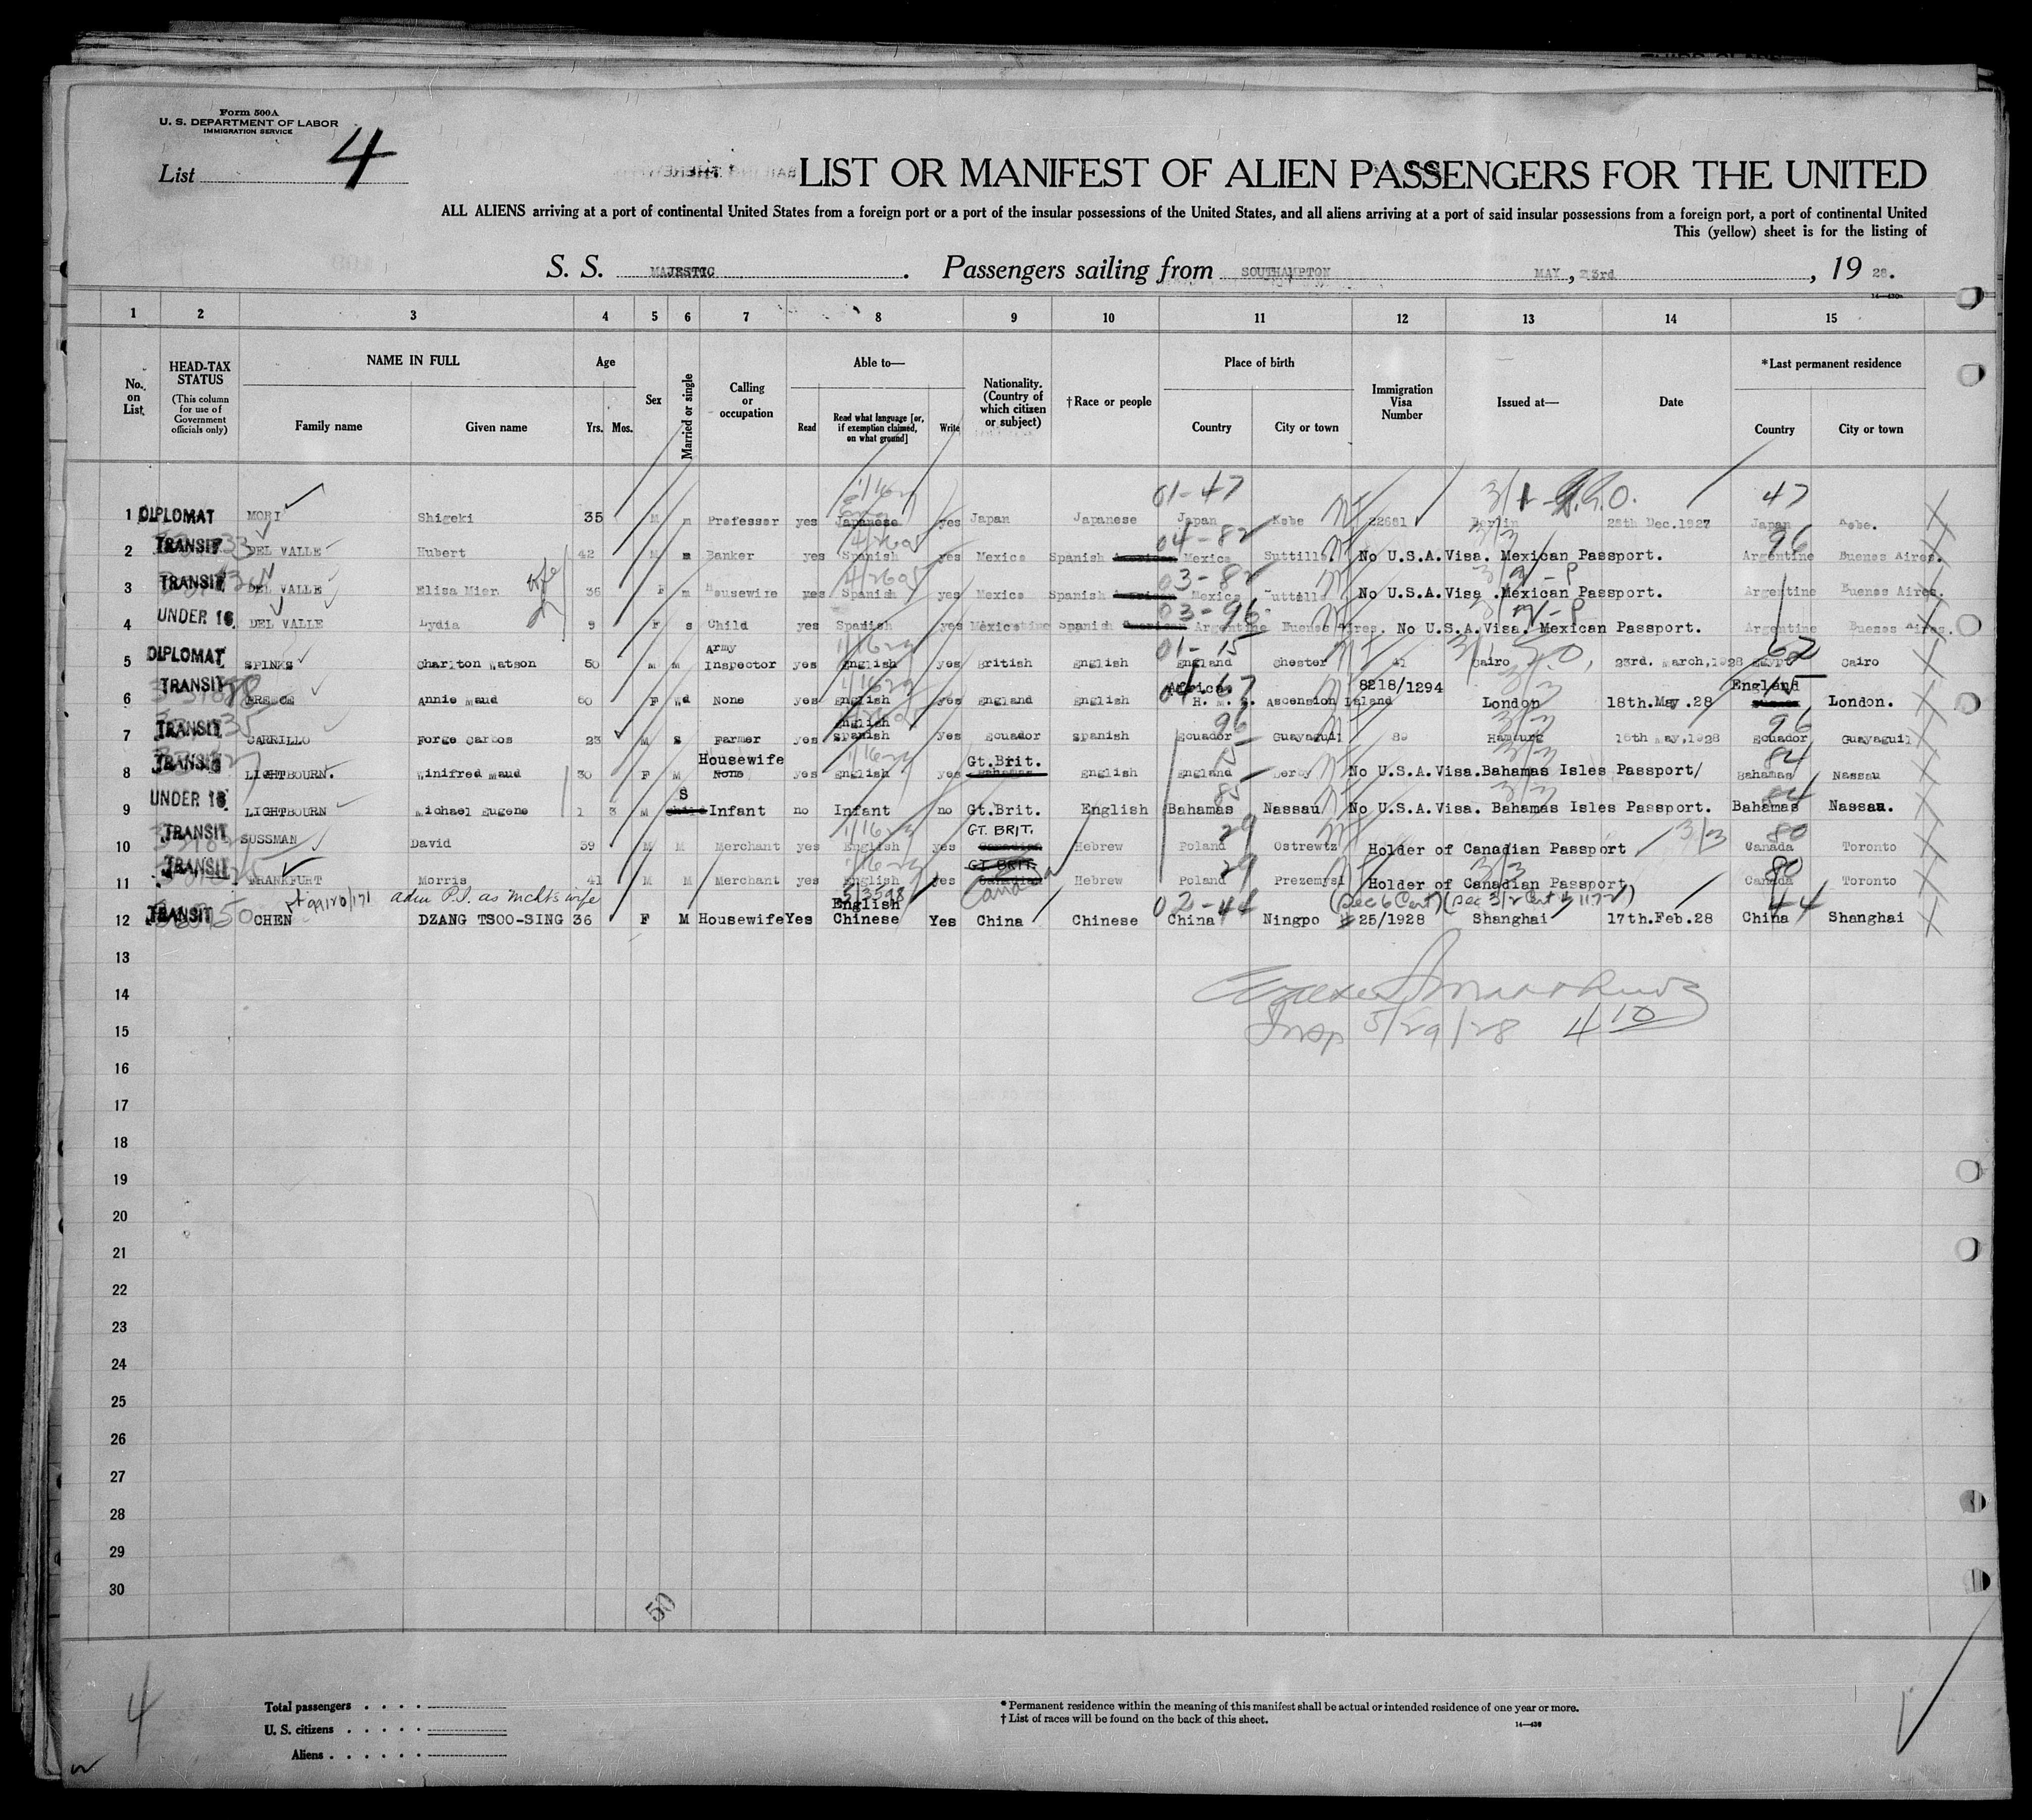 Form 500A
U. S. DEPARTMENT OF LABOR
IMMIGRATION SERVICE
List 4
LIST OR MANIFEST OF ALIEN PASSENGERS FOR THE UNITED
ALL ALIENS arriving at a port of continental United States from a foreign port or a port of the insular possessions of the United States, and all aliens arriving at a port of said insular possessions from a foreign port, a port of continental United
This (yellow) sheet is for the listing of
S. S. MAJESTIC. Passengers sailing from SOUTHAMPTON MAY, 23rd, 1928.
14—430a
1 2 3 4 5 6 7 8 9 10 11 12 13 14 15
No. on List
HEAD-TAX STATUS (This column for use of Government officials only)
NAME IN FULL Family name Given name
Age Yrs. Mos.
Sex
Married or single
Calling or occupation
Able to— Read Read what language [or, if exemption claimed, on what ground] Write
Nationality. (Country of which citizen or subject)
†Race or people
Place of birth Country City or town
Immigration Visa Number
Issued at—
Date
*Last permanent residence Country City or town
01-47 47
1 DIPLOMAT MORI Shigeki 35 M m Professor yes Japanese yes Japan Japanese Japan Kobe 22681 Berlin 28th Dec.1927 Japan Kobe.
04-82 96
2 TRANSIT DEL VALLE Hubert 42 M m Banker yes Spanish yes Mexico Spanish Mexico Suttillo No U.S.A.Visa. Mexican Passport. Argentine Buenos Aires.
03-82
3 TRANSIT DEL VALLE Elisa Mier wife 36 F m Housewife yes Spanish yes Mexico Spanish Mexico No U.S.A.Visa .Mexican Passport. Argentine Buenos Aires.
03-96
4 UNDER 16 DEL VALLE Lydia 9 F s Child yes Spanish yes Mexico Spanish Argentine Buenos Aires. No U.S.A.Visa. Mexican Passport. Argentine Buenos Aires.
01-15 62
5 DIPLOMAT SPINKS Charlton Watson 50 m m Army Inspector yes English yes British English England Chester 41 Cairo 23rd. March,1928 Egypt Cairo
6 TRANSIT BREECE Annie Maud 60 F Wd None yes English yes England English Africa. H. M. S. Ascension Island 8218/1294 London 18th.May.28 England London.
96 96
7 TRANSIT CARRILLO Forge Carbos 23 M S Farmer yes English Spanish yes Ecuador Spanish Ecuador Guayaquil 89 Hamburg 16th May,1928 Ecuador Guayaguil
15 84
8 TRANSIT LIGHTBOURN. Winifred Maud 30 F M Housewife None yes English yes Gt.Brit. Bahamas English England Derby No U.S.A.Visa.Bahamas Isles Passport/ Bahamas Nassau
85 84
9 UNDER 16 LIGHTBOURN Michael Eugene 1 3 M S Child Infant no Infant no Gt.Brit. English Bahamas Nassau No U.S.A.Visa. Bahamas Isles Passport. Bahamas Nassau.
29 3/3 80
10 TRANSIT SUSSMAN David 39 M M Merchant yes English yes GT. BRIT. Canadian Hebrew Poland Ostrewtz Holder of Canadian Passport Canada Toronto
29 3/3 80
11 TRANSIT FRANKFURT Morris 41 M M Merchant yes English yes GT BRIT. Canadian Canada Hebrew Poland Prezemysl Holder of Canadian Passport Canada Toronto
99120/171 adm P.I. as Mcht's wife 02-44 (Sec 6 Cert) 44
12 TRANSIT CHEN DZANG TSOO-SING 36 F M Housewife Yes English Chinese Yes China Chinese China Ningpo 25/1928 Shanghai 17th.Feb.28 China Shanghai
13
14
15 Insp 5/29/28 4 10
16
17
18
19
20
21
22
23
24
25
26
27
28
29
30
50
4
Total passengers
U. S. citizens
Aliens
* Permanent residence within the meaning of this manifest shall be actual or intended residence of one year or more.
† List of races will be found on the back of this sheet.
14—430